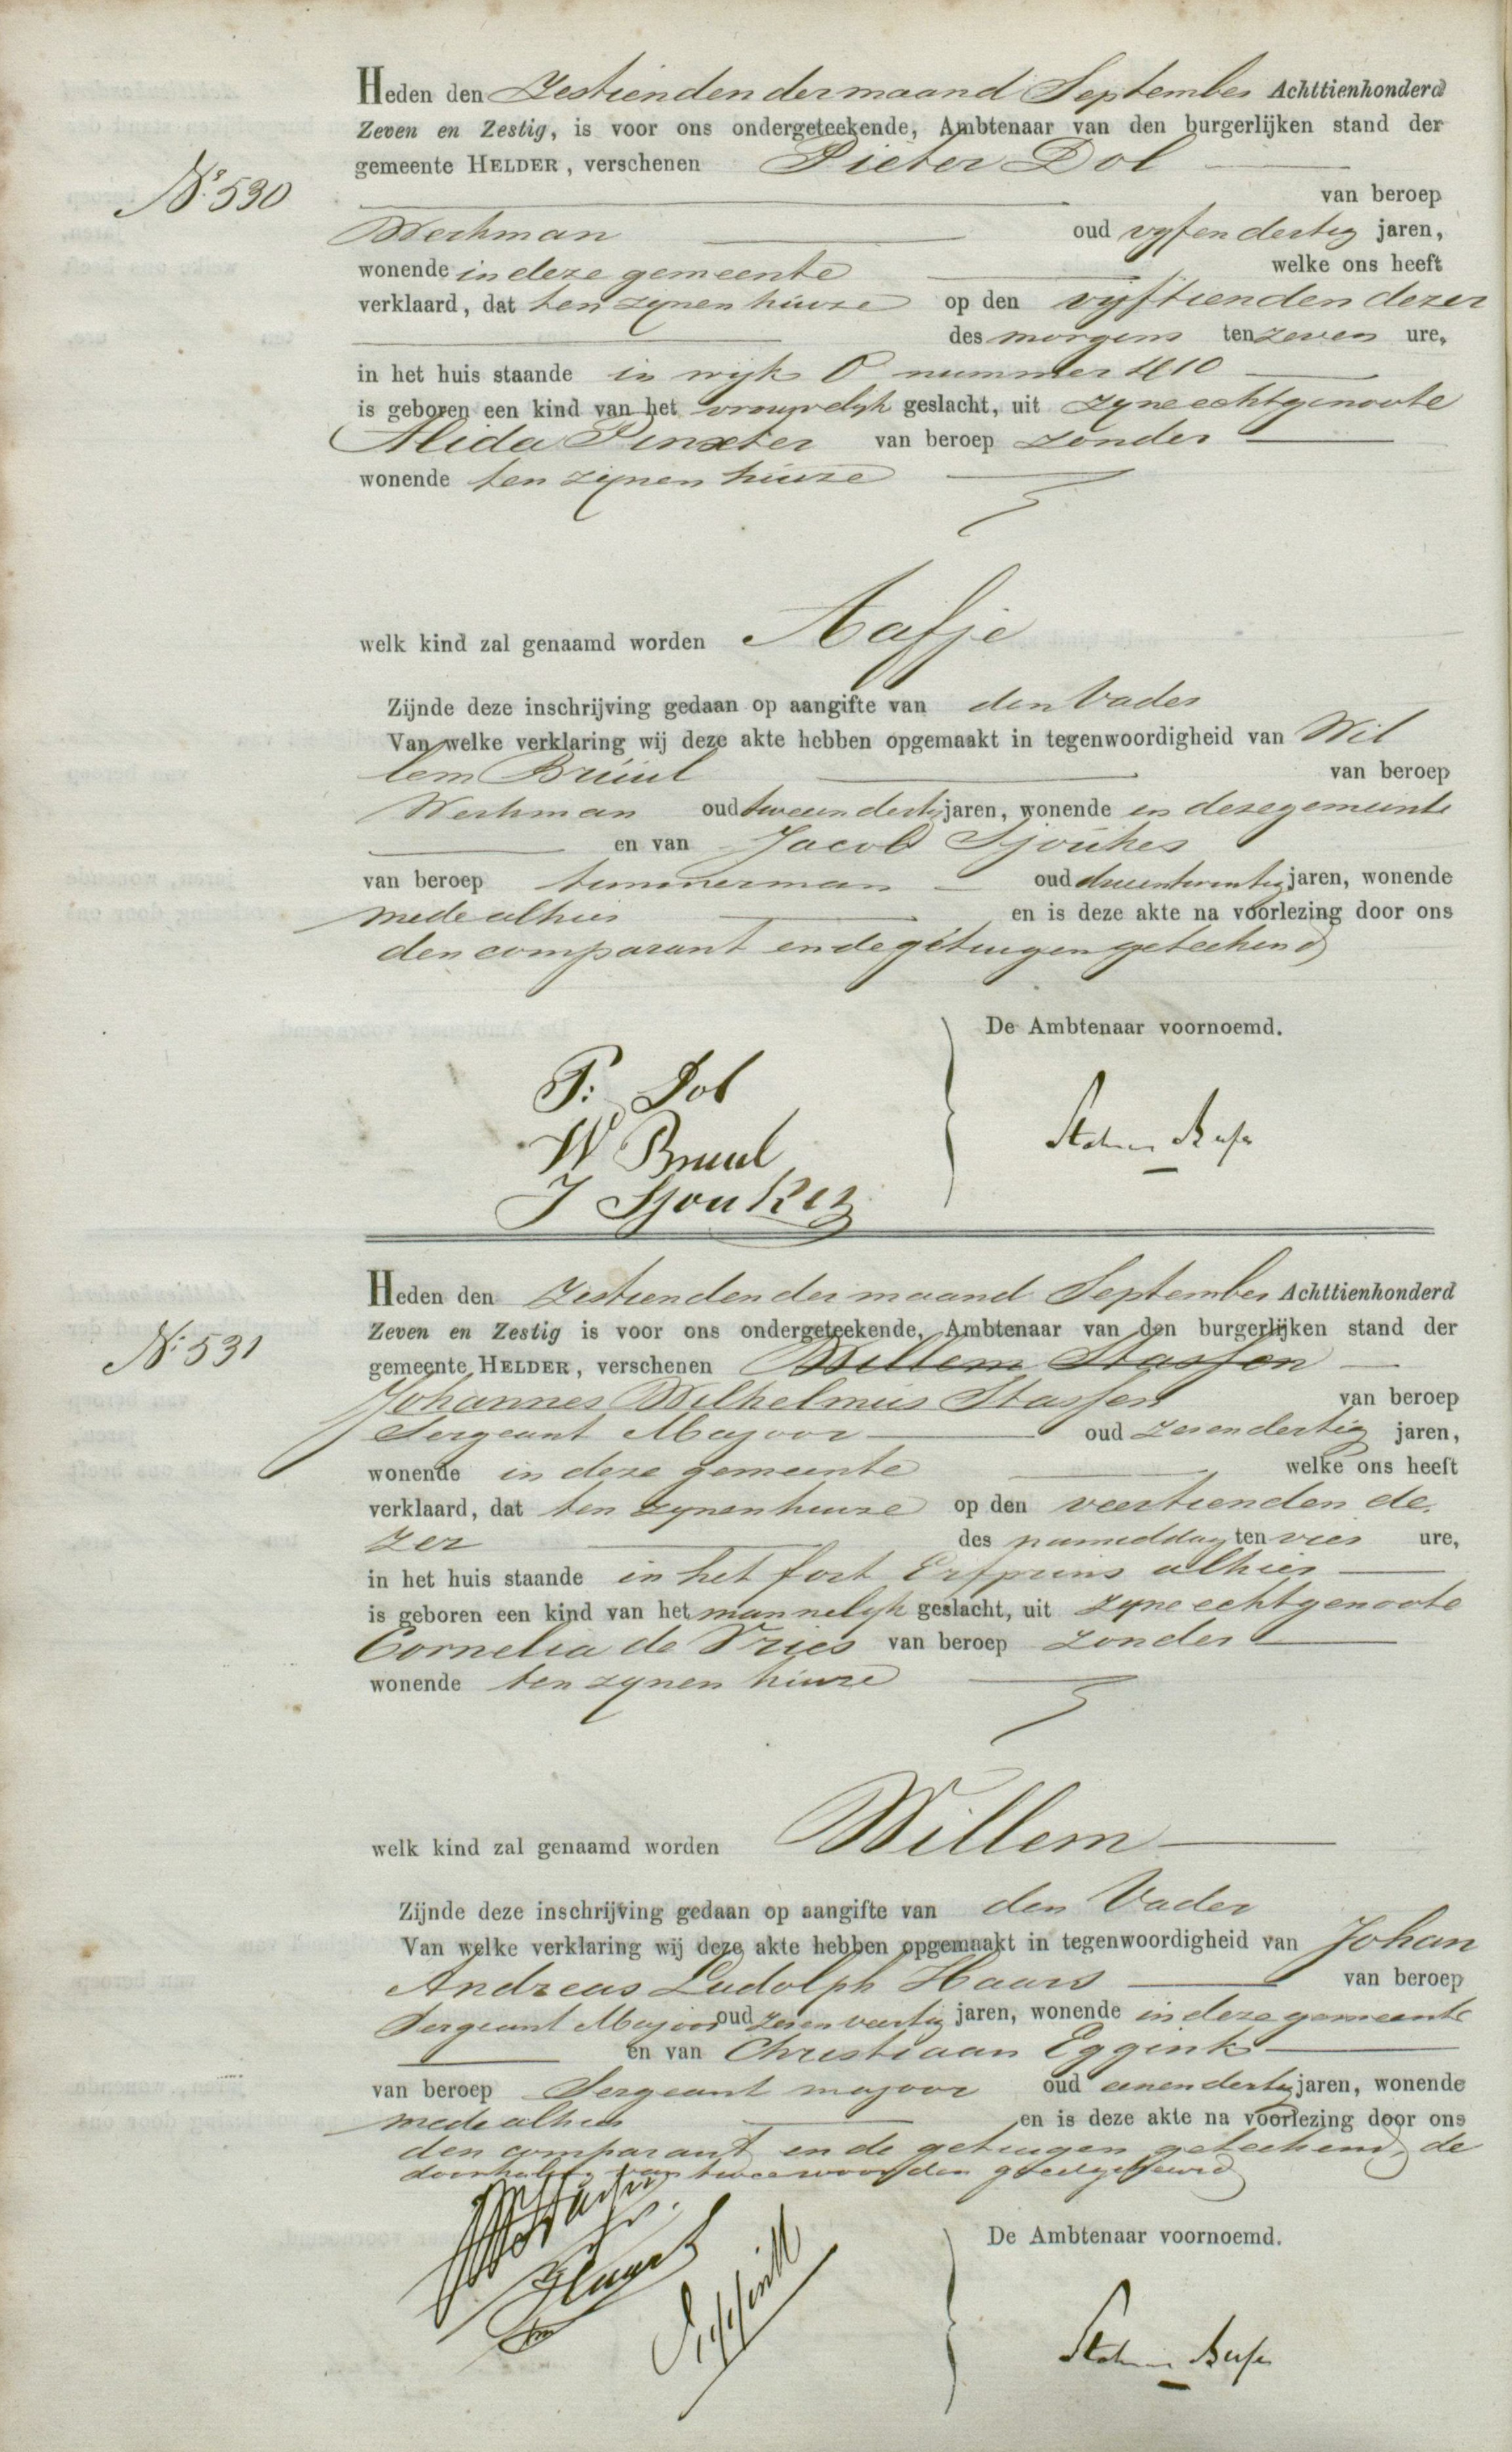 Heden den Zestienden der maand September Achttienhonderd
Zeven en Zestig, is voor ons ondergeteekende, Ambtenaar van den burgerlijken stand der
gemeente HELDER, verschenen Pieter Dol
No 530
van beroep
Werkman oud vyfendertig jaren,
wonende in deze gemeente welke ons heeft
verklaard, dat ten zynen huize op den vyftienden dezer
des morgens ten zeven ure,
in het huis staande in wyk O nummer 410
is geboren een kind van het vrouwelyk geslacht, uit zyne echtgenoote
Alida Pinxter van beroep zonder
wonende ten zynen huize
welk kind zal genaamd worden Aafje
Zijnde deze inschrijving gedaan op aangifte van den Vader
Van welke verklaring wij deze akte hebben opgemaakt in tegenwoordigheid van Wil
lem Bruul van beroep
Werkman oud tweeendertig jaren, wonende in deze gemeente
en van Jacob Sjoukes
van beroep timmerman oud drieentwintig jaren, wonende
mede alhier en is deze akte na voorlezing door ons
den comparant en de getuigen geteekend
De Ambtenaar voornoemd.
P: Dol
W Bruul
J Sjoukes
Heden den Zestienden der maand September Achttienhonderd
Zeven en Zestig is voor ons ondergeteekende, Ambtenaar van den burgerlijken stand der
No 531
gemeente HELDER, verschenen Willem Stassen
Johannes Wilhelmus Stassen van beroep
Sergeant Majoor oud zesendertig jaren,
wonende in deze gemeente welke ons heeft
verklaard, dat ten zynen huize op den veertienden de
zer des namiddag ten vier ure,
in het huis staande in het fort Erfprins alhier
is geboren een kind van het mannelyk geslacht, uit zyne echtgenoote
Cornelia de Vries van beroep zonder
wonende ten zynen huize
welk kind zal genaamd worden Willem
Zijnde deze inschrijving gedaan op aangifte van den Vader
Van welke verklaring wij deze akte hebben opgemaakt in tegenwoordigheid van Johan
Andreas Ludolph Haars van beroep
Sergeant Majoor oud zesenveertig jaren, wonende in deze gemeente
en van Christiaan Eggink
van beroep Sergeant majoor oud eenendertig jaren, wonende
mede alhier en is deze akte na voorlezing door ons
den comparant en de getuigen geteekend, de
doorhaling van twee woorden goedgekeurd
De Ambtenaar voornoemd.
Stassen
Haars
Eggink